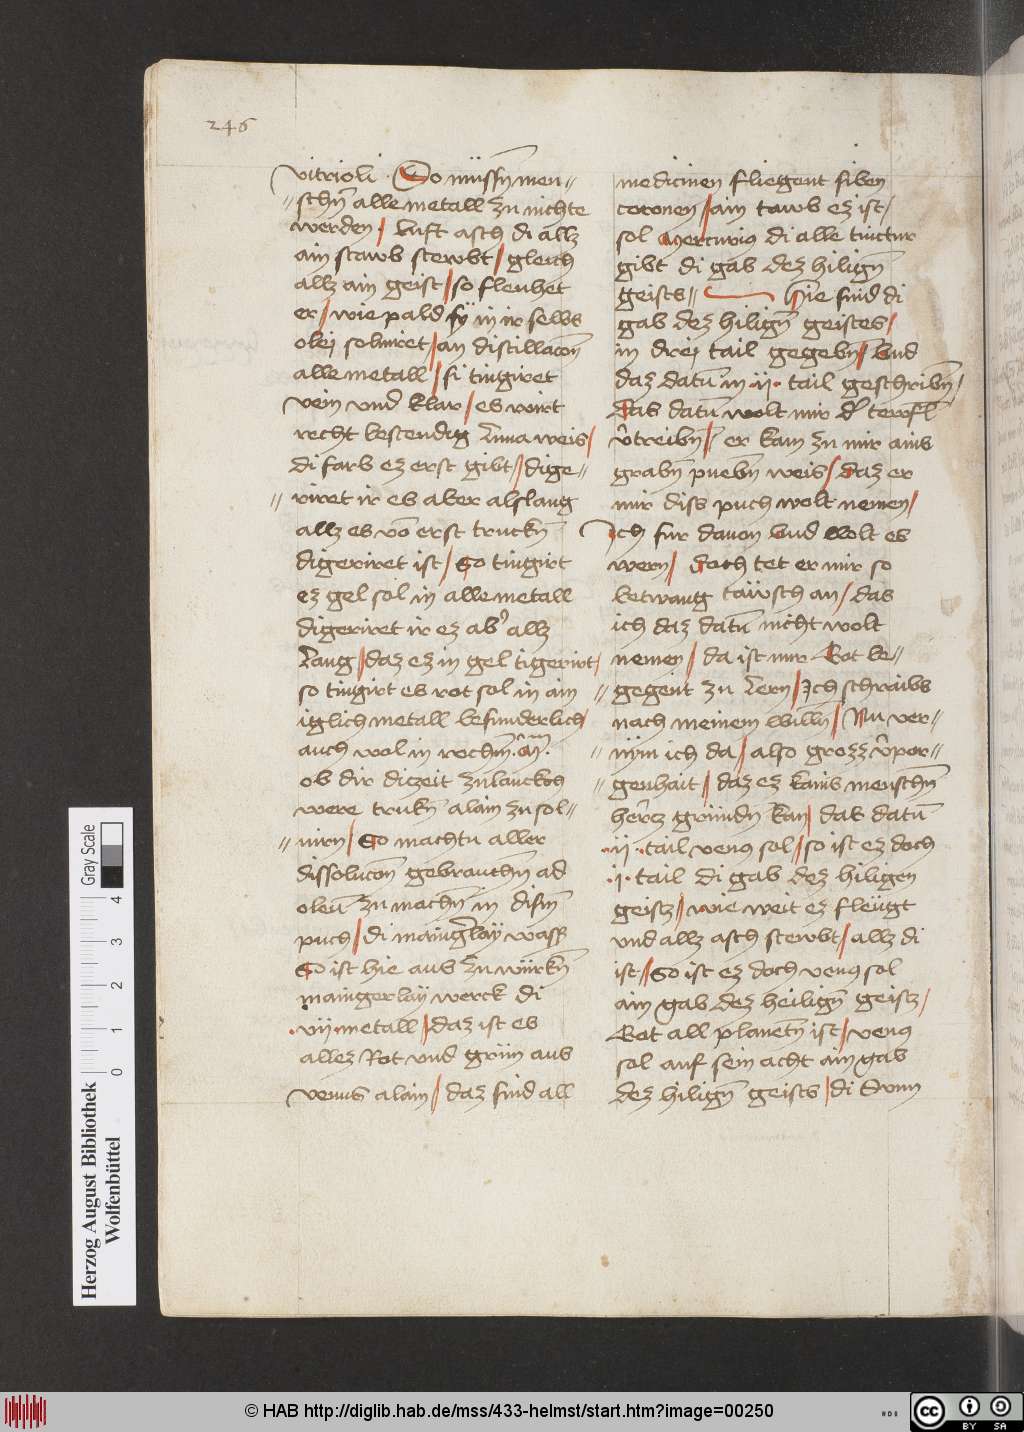 246
vitrioli · So müssñ men〃
〃schñ alle metall zu nichte
werden / luft asch di allz
ain stawb stewbt / gleich
allz ain geist / so fleuhet
er / wie pald sÿ in ir selbs
olej solviret / an distillacōn
alle metall / si tingiret
vein vnd klar / es wirt
recht bestendig Luna weis /
di farb ez erst gibt // dige〃
〃riret ir es aber alslang
allz es vō erst truckñ
digeriret ist / So tingirt
ez gel sol in alle metall
digeriret ir ez ab' allz
Lang / daz ez in gel tigerirt /
so tingirt es rot sol in ain
iglich metall besunderlich /
auch wol in rechm̄
ob dir dizeit
were trukñ alain zu sol〃
〃uirn / So machtu aller
dissolucōn gebrauchñ ad
oleū zu machñ in dism̄
puch / di maing'laÿ wass
So ist hie aus zu würkñ
mainger laÿ werck di
·vij· metall / daz ist es
allez Rot vnd grün aus
venus alain / daz sind all
medicinen fliegent siben
coronen / ain tawb ez ist /
sol mercurius di alle tinctur
gibt di gab dez hiligñ
geists〃 Hie sind di
gab dez hiligñ geistes /
in drej tail gegebñ / Vnd
daz datū in ·ij· tail geschribñ /
Das datū wolt mir d' tewfl
v'treibñ / er kam zu mir ains
grabñ puebñ weis / daz er
mir diss puch wolt nemen /
Ich fur dauon vnd wolt es
wern / Doch tet er mir so
betwang täwsch an / das
ich daz datū nicht wolt
nemen / da ist mir Got be〃
〃gegent zu Lern / Ich schraibs
nach meinem willñ / Nu ver〃
〃nÿm ich da / also grozz v'por〃
〃genhait / daz ez kains menschñ
hercz gründñ kan / dat datū
·ij· tail venus sol // so ist ez doch
·j· tail di gab dez hiligen
geistz / wie weit ez fleügt
vnd allz asch stewbt / allz di
ist // So ist ez doch venus sol
ain gab dez heiligñ geistz /
Got all planetñ ist / venus
sol auf sein acht ain gab
dez hiligñ geists / di Sunn
Gray Scale
0 1 2 3 4
Herzog August Bibliothek
Wolfenbüttel
© HAB http://diglib.hab.de/mss/433-helmst/start.htm?image=00250
HAB
cc BY SA